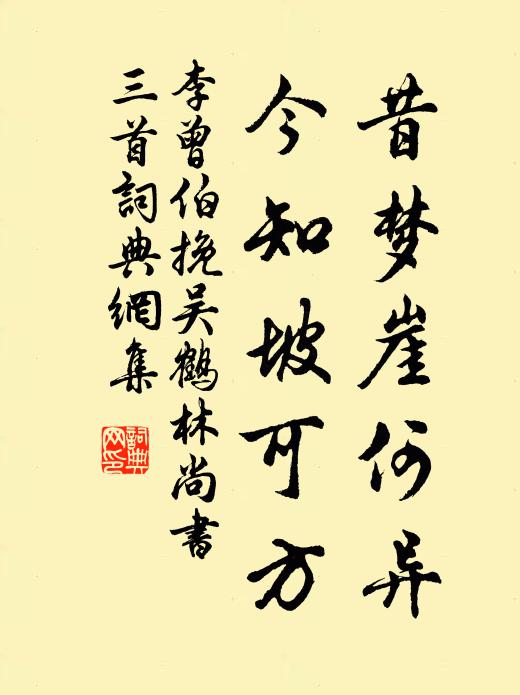 昔梦崖何异
今知坡可方
李曾伯挽吴鹤林尚書
三首詞典網集
詞典
网印